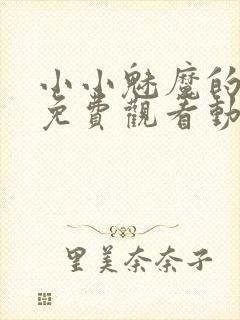 小小魅魔的
免費觀看動
里美奈奈子